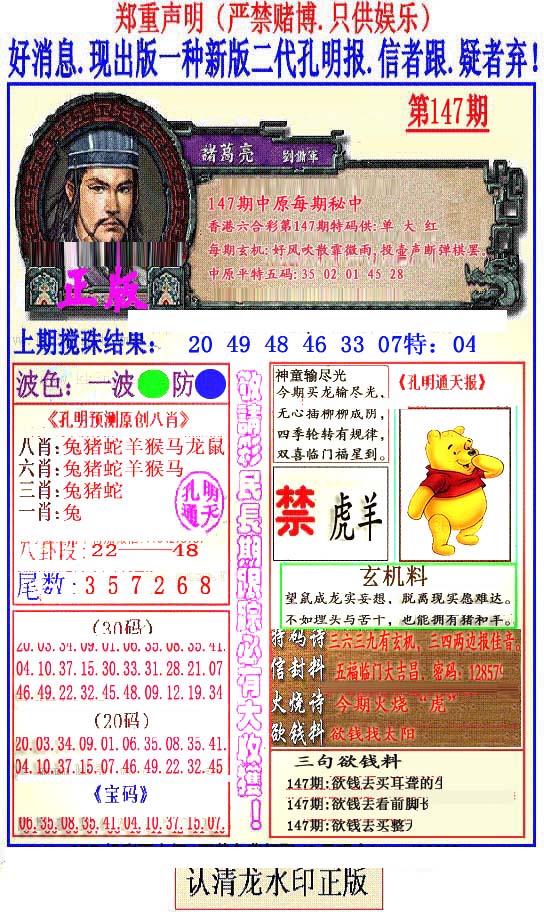 郑重声明（严禁赌博.只供娱乐）
好消息.现出版一种新版二代孔明报.信者跟.疑者弃!
第147期
諸葛亮 劉備軍
147期中原每期秘中
香港六合彩第147期特码供:单 大 红
每期玄机:好风吹散霏微雨,投壶声断弹棋罢。
中原平特五码:35 02 01 45 28
正版
上期搅珠结果： 20 49 48 46 33 07特：04
波色：一波 防
《孔明预测原创八肖》
八肖:兔猪蛇羊猴马龙鼠
六肖:兔猪蛇羊猴马
三肖:兔猪蛇
一肖:兔
孔明
通天
八卦段:22——48
尾数:357268
(30码)
20.03.34.09.01.06.35.08.35.41
04.10.37.15.30.33.31.28.21.07
46.49.22.32.45.48.09.12.19.34
(20码)
20.03.34.09.01.06.35.08.35.41.
04.10.37.15.07.46.49.22.32.45
《宝码》
06.35.08.35.41.04.10.37.15.07.
敬請彩民長期跟踪必有大收獲！
神童输尽光
今期买龙输尽光、
无心插柳柳成阴，
四季轮转有规律，
双喜临门福星到。
《孔明通天报》
禁
虎羊
玄机料
望鼠成龙实妄想，脱离现实愿难达。
不如埋头与苦十，也能拥有猪和羊。
特码诗 三六三九有玄机，三四两边报佳音。
信封料 五福临门大吉昌，密码：128579
火烧诗 今期火烧“虎”
欲钱料 欲钱找太阳
三句欲钱料
147期:欲钱去买耳聋的
147期:欲钱去看前脚
147期:欲钱去买整
认清龙水印正版